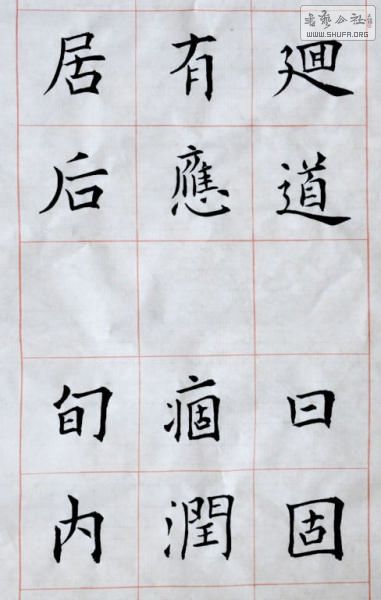 廻道曰固
有應痼潤
居后旬内
书艺公社
WWW.SHUFA.ORG